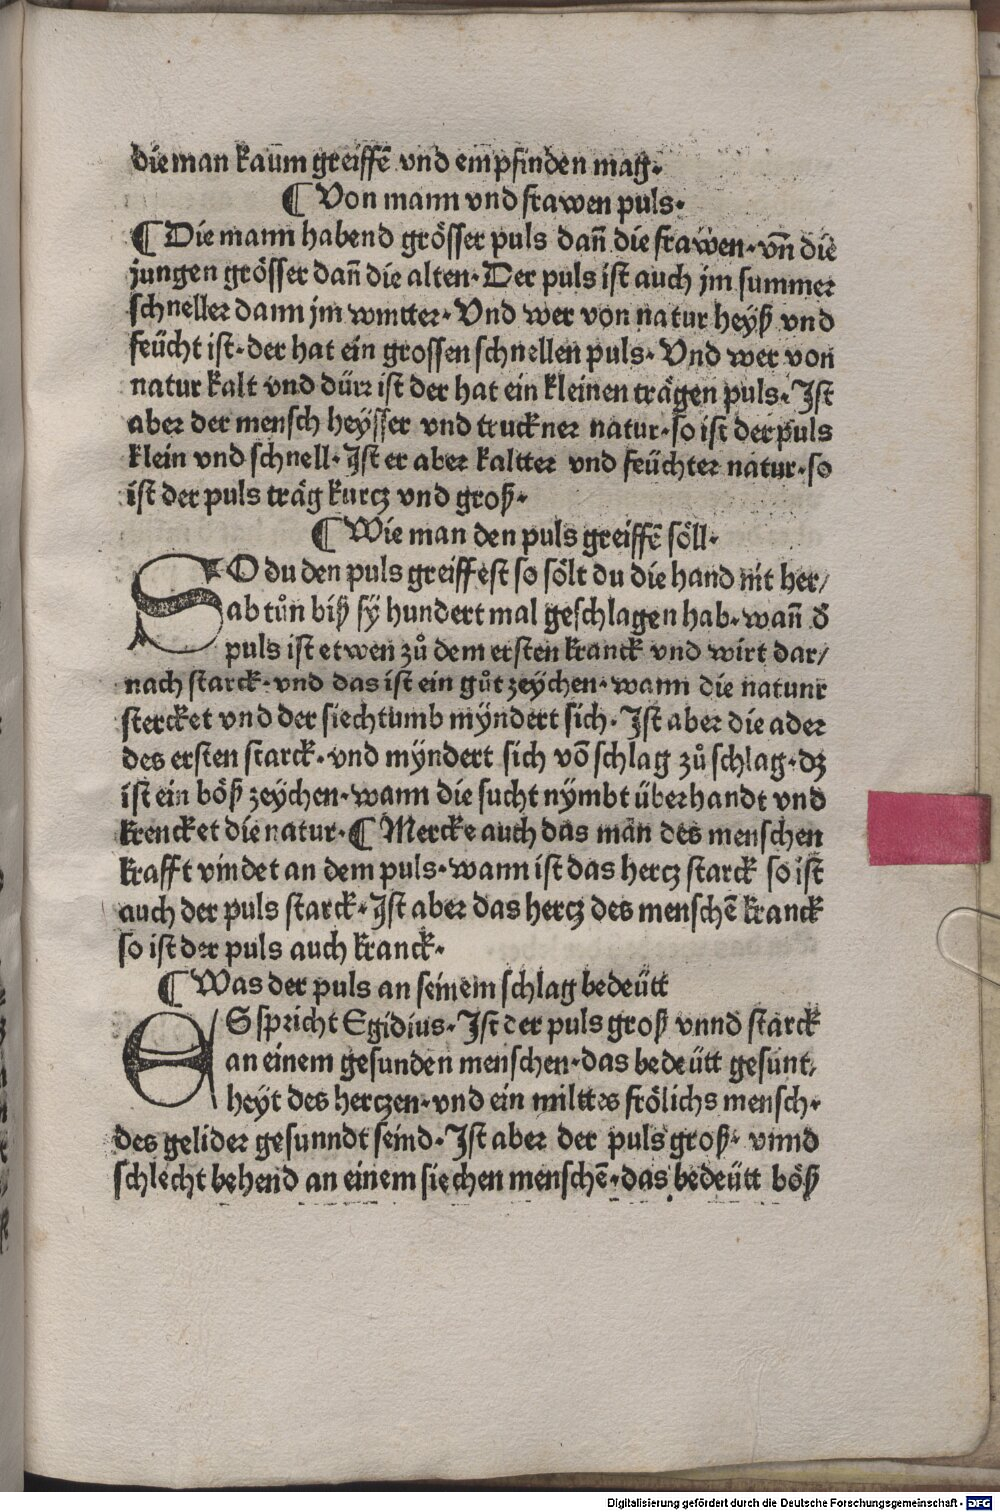 die man kaum̄ greiffē vnd empfinden mag·
¶ Von mann vnd frawen puls·
¶ Die mann habend grösser puls dañ die frawen·vñ die
jungen grösser dañ die alten·Der puls ist auch jm summer
schneller dann jm wintter·Vnd wer von natur heyß vnd
feücht ist·der hat ein grossen schnellen puls·Vnd wer von
natur kalt vnd dürr ist der hat ein kleinen trägen puls·Ist
aber der mensch heysser vnd truckner natur·so ist der puls
klein vnd schnell·Ist er aber kaltter vnd feüchter natur·so
ist der puls träg kurcz vnd groß·
¶ Wie man den puls greiffē söll·
SO du den puls greiffest so sölt du die hand nit her/
ab tůn biß sÿ hundert mal geschlagen hab·wañ d̕
puls ist etwen zů dem ersten kranck vnd wirt dar/
nach starck·vnd das ist ein gůt zeychen·wann die natunr
stercket vnd der siechtumb mÿndert sich·Ist aber die ader
des ersten starck·vnd mÿndert sich vō schlag zů schlag·dz
ist ein böß zeychen·wann die sucht nÿmbt überhandt vnd
krencket die natur·¶ Mercke auch das man des menschen
krafft vindet an dem puls·wann ist das hercz starck so ist
auch der puls starck·Ist aber das hercz des menschē kranck
so ist der puls auch kranck·
¶ Was der puls an seinem schlag bedeütt
ES spricht Egidius·Ist der puls groß vnnd starck
an einem gesunden menschen·das bedeütt gesunt/
heyt des herczen·vnd ein milttes frölichs mensch·
des gelider gesunndt seind·Ist aber der puls groß· vnnd
schlecht behend an einem siechen menschē·das bedeütt böß
Digitalisierung gefördert durch die Deutsche Forschungsgemeinschaft - DFG